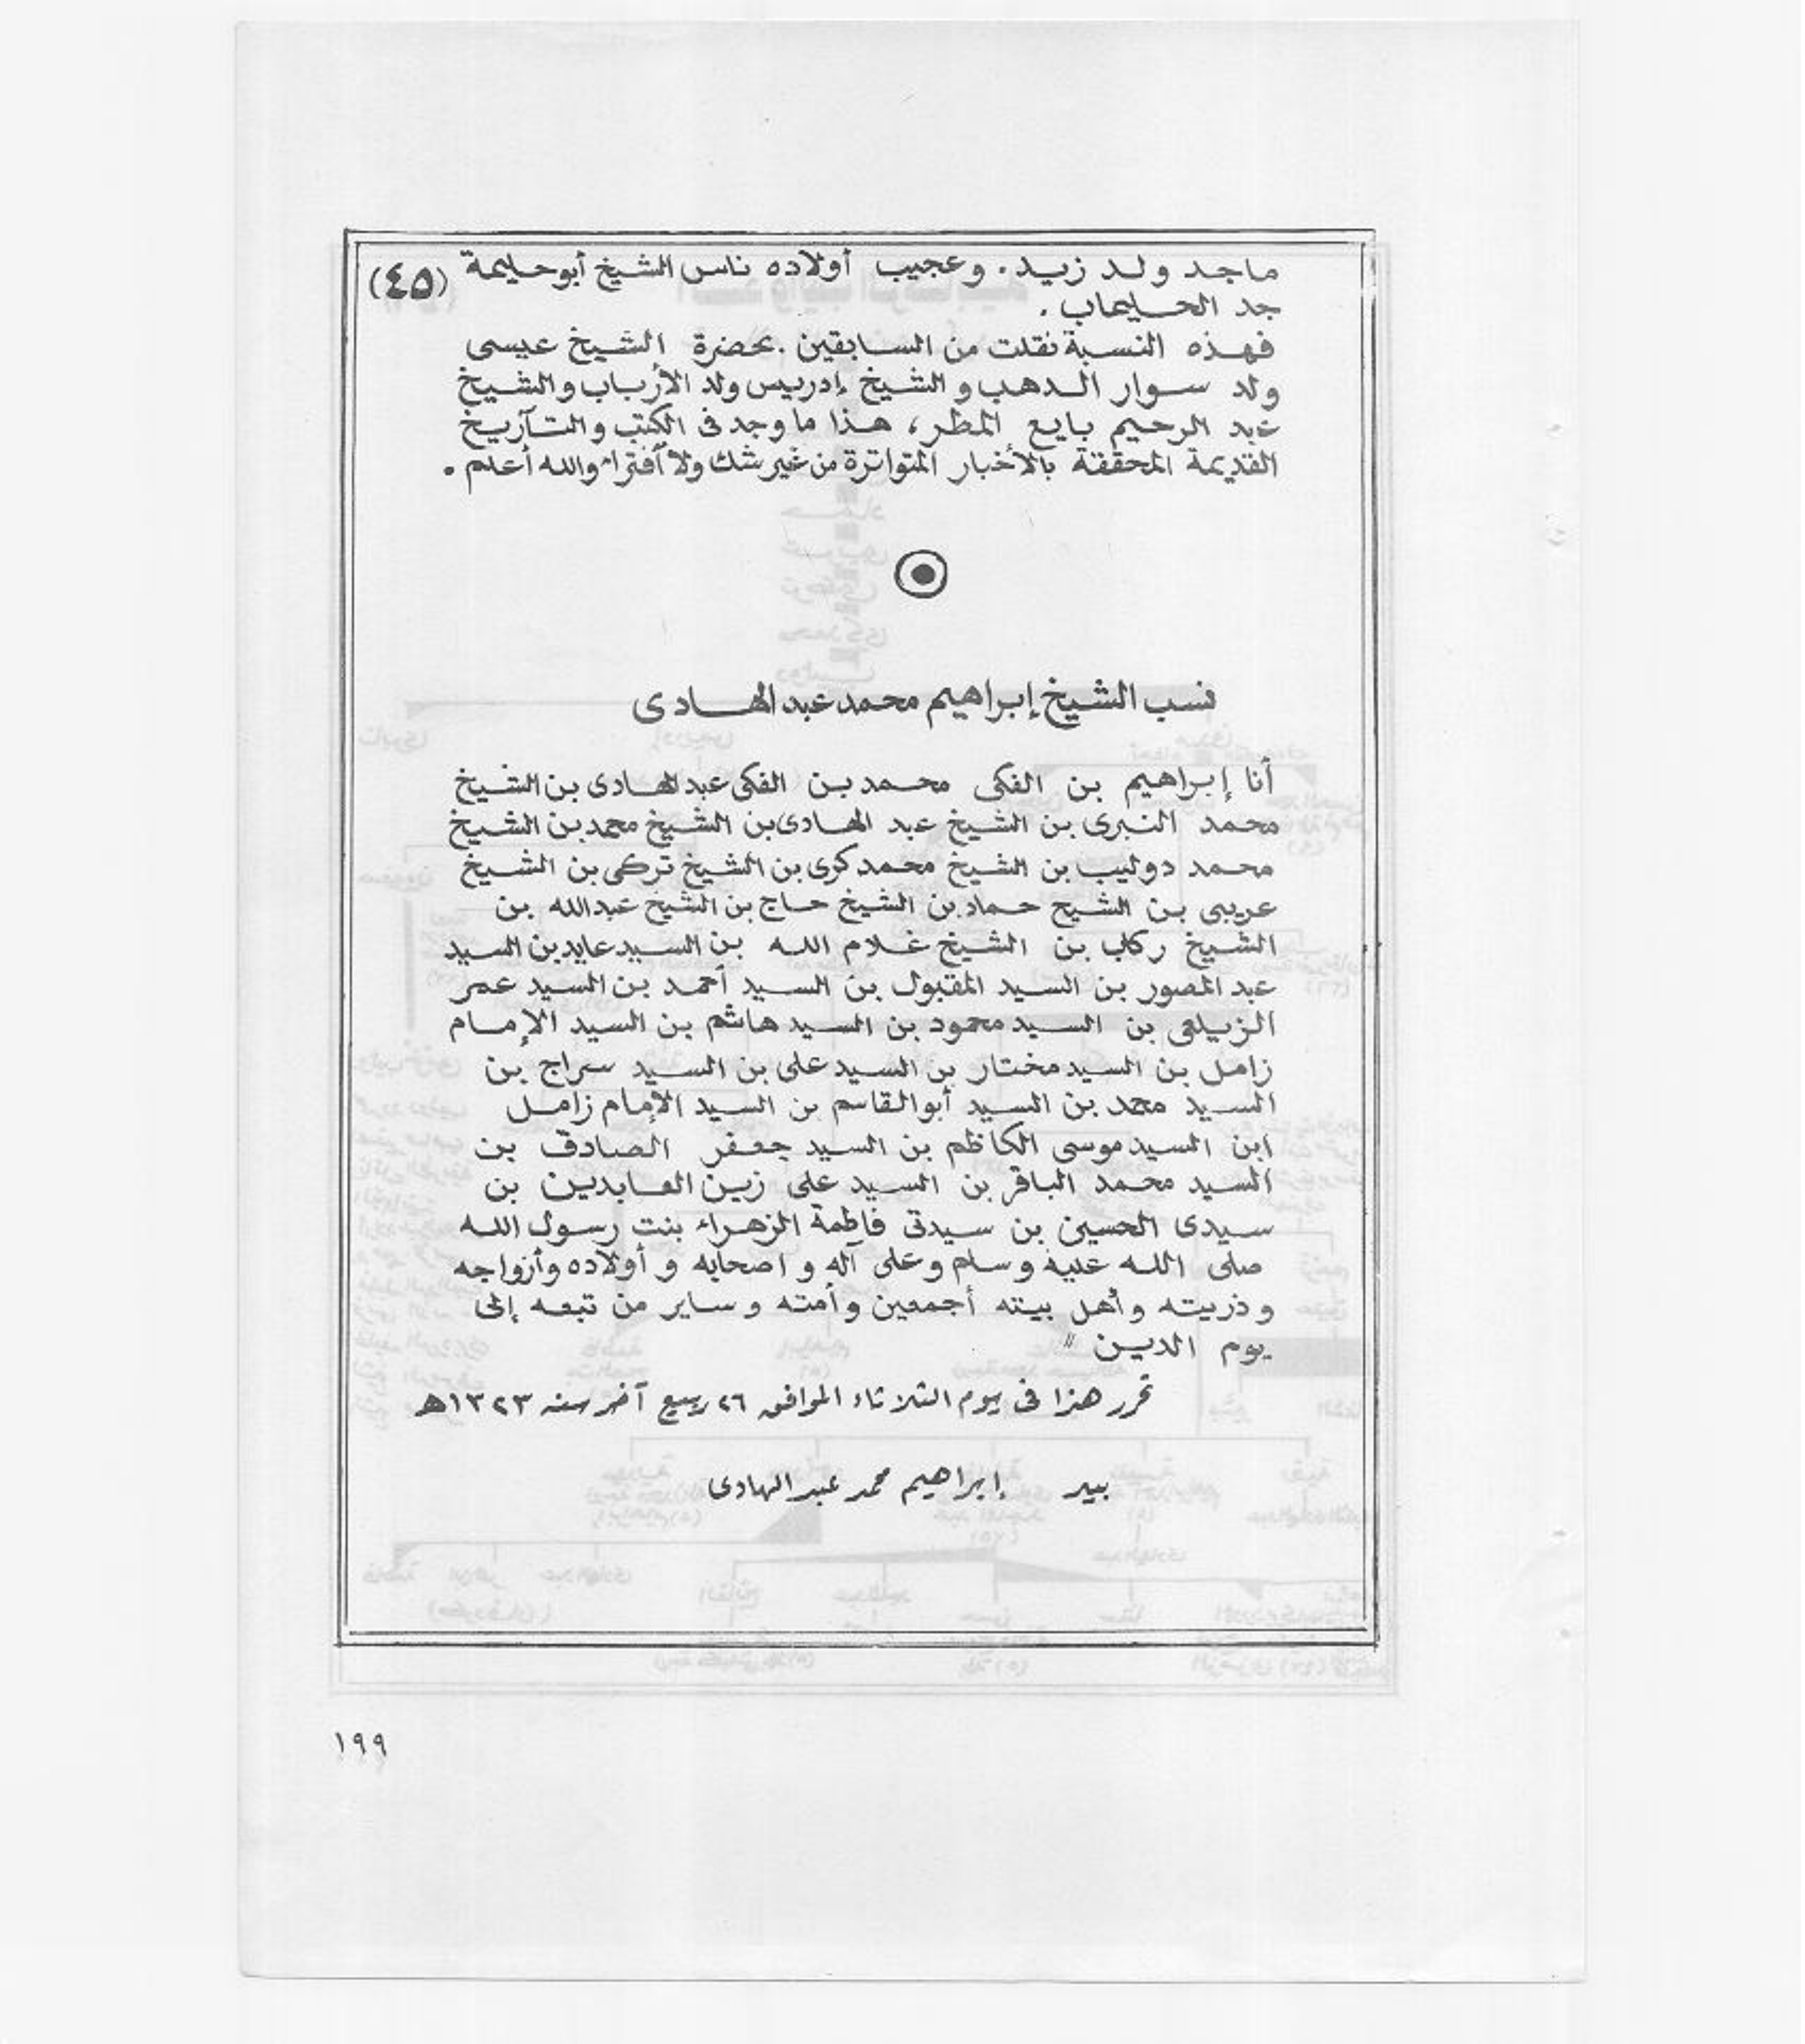 ماجد ولد زيد . وعجيب أولاده ناس الشيخ أبو حليمة (٤٥)
جد الحليماب .
فهذه النسبة نقلت من السابقين . بحضرة الشيخ عيسى
ولد سوار الدهب و الشيخ إدريس ولد الأرباب والشيخ
عبد الرحيم بايع المطر ، هذا ما وجد فى الكتب والتآريخ
القديمة المحققة بالأخبار المتواترة من غير شك ولا أفتراء والله أعلم .
نسب الشيخ إبراهيم محمد عبد الهادى
أنا إبراهيم بن الفكى محمد بن الفكى عبد الهادى بن الشيخ
محمد النبرى بن الشيخ عبد الهادى بن الشيخ محمد بن الشيخ
محمد دوليب بن الشيخ محمد كرى بن الشيخ تركى بن الشيخ
عريبى بن الشيخ حماد بن الشيخ حاج بن الشيخ عبدالله بن
الشيخ ركاب بن الشيخ غلام الله بن السيد عايد بن السيد
عبد المصور بن السيد المقبول بن السيد أحمد بن السيد عمر
الزيلعى بن السيد محمود بن السيد هاشم بن السيد الإمام
زامل بن السيد مختار بن السيد على بن السيد سراج بن
السيد محمد بن السيد أبو القاسم بن السيد الإمام زامل
ابن السيد موسى الكاظم بن السيد جعفر الصادق بن
السيد محمد الباقر بن السيد على زين العابدين بن
سيدى الحسين بن سيدتى فاطمة الزهراء بنت رسول الله
صلى الله عليه وسلم وعلى آله و اصحابه و أولاده وأزواجه
وذريته وأهل بيته أجمعين وأمته وساير من تبعه إلى
يوم الدين "
تحرر هذا فى يوم الثلاثاء الموافق ٢٦ ربيع آخر سنه ١٣٢٣هـ
بيد إبراهيم محمد عبد الهادى
١٩٩